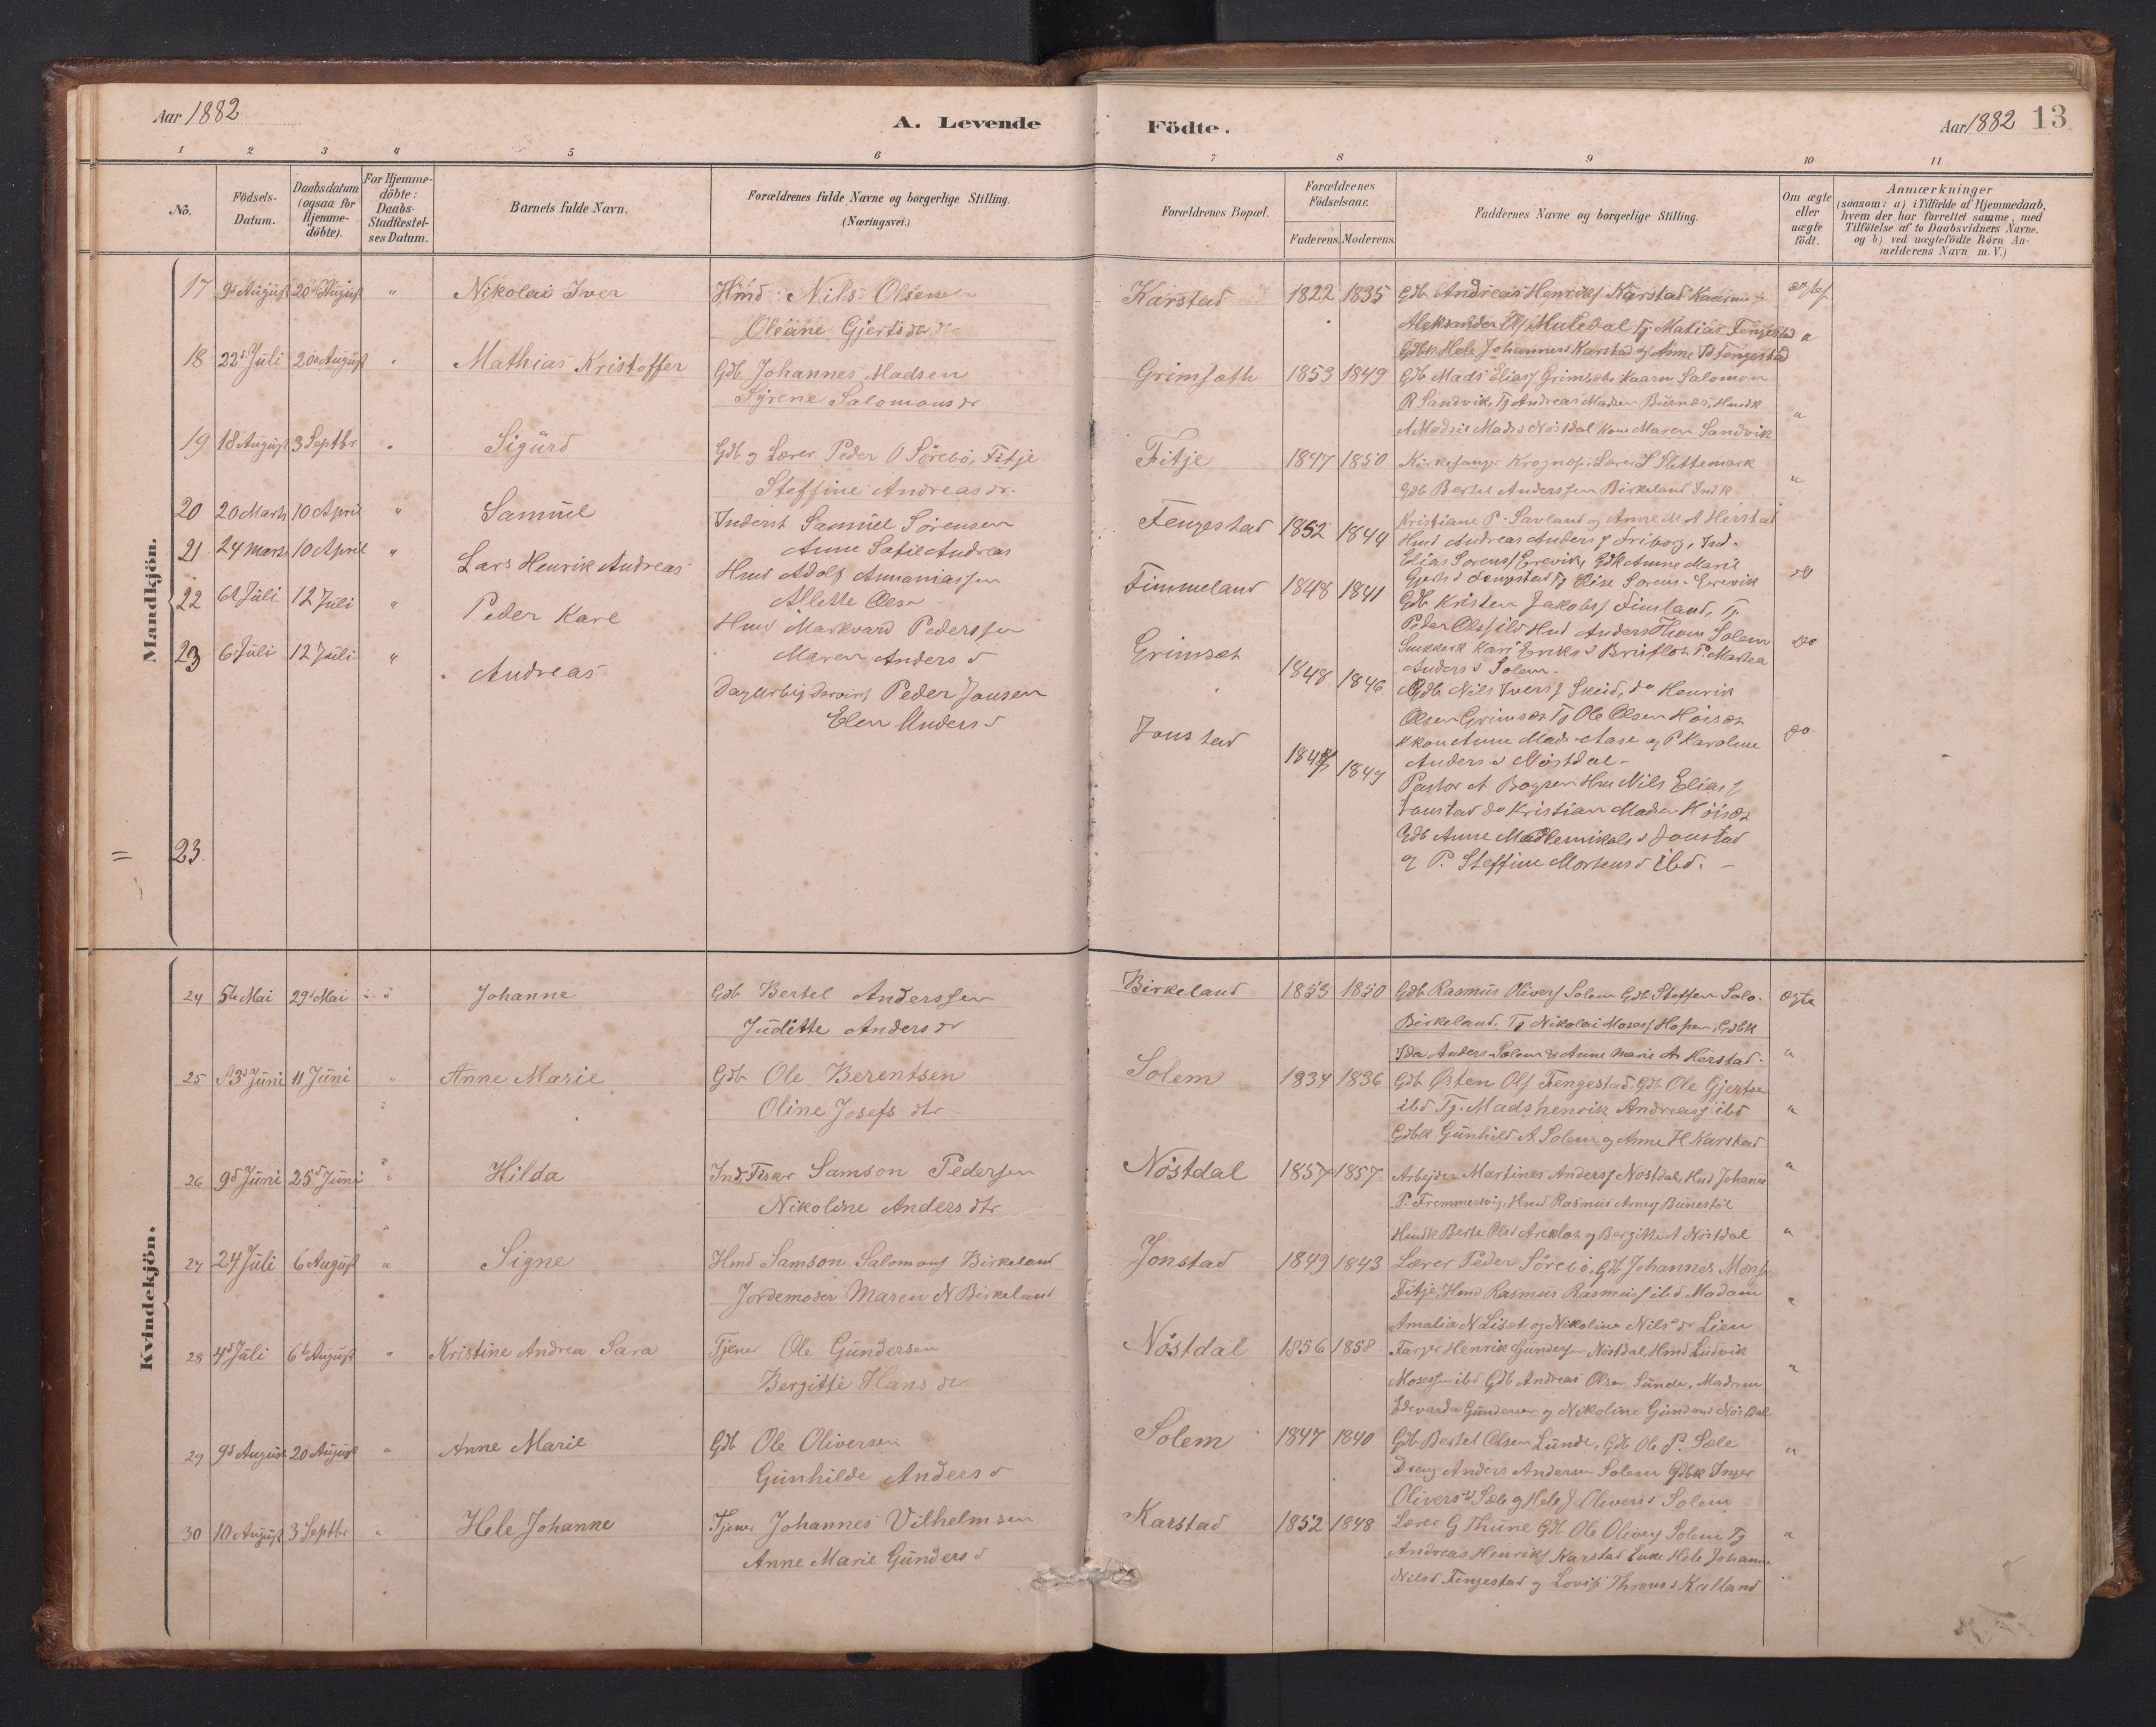 Aar 1882
A. Levende
Födte.
Aar 1882 13
1 2 3 4 5 6 7 8 9 10 11
No.
Födsels-
Datum.
Daabsdatum
(ogsaa for
Hjemme-
döbte).
For Hjemme-
döbte:
Daabs-
Stadfæstel-
ses Datum.
Barnets fulde Navn.
Forældrenes fulde Navne og borgerlige Stilling.
(Næringsvei.)
Forældrenes Bopæl.
Forældrenes
Födselsaar.
Faderens. Moderens.
Faddernes Navne og borgerlige Stilling.
Om ægte
eller
uægte
födt.
Anmærkninger
(saasom: a) i Tilfælde af Hjemmedaab,
hvem der har forrettet samme, med
Tilföielse af to Daabsvidners Navne.
og b) ved uægtefödte Börn An-
melderens Navn m. V.)
Mandkjön.
17 9d August 20d August " Nikolai Iver
Hmd Nils Olsen
Oleane Gjertsdr
Karstad 1822 1835
Gdb Andreas Henriks Karstad
Aleksander Muledal Tj Matias Fengestad
Gdbk Hele Johannesd Karstad og Anne Fengestad
18 22d Juli 20d August " Mathias Kristoffer
Gdb Johannes Madsen
Syrene Salomonsdr
Grimsæth 1853 1849
Gdb Mads Elias Grimsæth Salomon
R Sandvik, Tj Andreas Madsen Buenæs, Hmdk
Mads d Nöstdal Kone Maren Sandvik
19 18 August 3 Septbr " Sigurd
Gdb og Lærer Peder O Sörebö, Fitje
Steffine Andreasdr.
Fitje 1847 1850
Kirkesanger Krognæs, Lærer S Slettemark
Gdb Bertel Anderssen Birkeland Indk
Kristiane P. Savland og Anne M A Herstad
20 20 Marts 10 April " Samuel
Inderst Samuel Sörensen
Anne Sofie Andreas
Fengestad 1852 1844
Hmd Andreas Anders Friborg, Ind.
Elias Sörens Erevik, Gdk Anne Marie
Gjerts d Fengestad Tj Elise Sörens Erevik
do
21 24 Marts 10 April " Lars Henrik Andreas
Hmd Adolf Annaniassen
Allette Olsen
Fimmeland 1848 1841
Gdb Kristen Jakobs Fimland, Tj.
Peder Ols ibd Hmd Anders Thom Solem
Kari Eriks d P. Martea
Anders d Solem.
do
22 6t Juli 12 Juli " Peder Karl
Hmd Markvard Pederssen
Maren Anders d
Grimsæt 1848 1846
Gdb Nils Ivers Skeid, do Henrik
Olsen Grimsæt Tj Ole Olsen Höisæt
Anne Mads Aase og P Karoline
Anders d Nöstdal
do.
23 6 Juli 12 Juli " Andreas
Peder Jansen
Elen Anders d
Jonstad 1847 1847
Pastor A Bogsen Hmd Nils Elias
Jonstad do Kristian Madsen Höisæt
Gdb Anne Jonstad
og P. Steffine Mortens d ibd.
= 23.
Kvindekjön.
24 5te Mai 29d Mai " Johanne
Gdb Bertel Anderssen
Juditte Andersdr
Birkeland 1853 1850
Gdb Rasmus Olivers Solem Gdb Steffen Salo.
Birkeland, Tj Nikolai Moses Hopen, Gdbk
Ida Anders Solem & Anne Marie A Herstad.
Ægte
25 3d Juni 11 Juni " Anne Marie
Gdb Ole Berentsen
Oline Josefs dtr
Solem 1834 1836
Gdb Østen Ols Fengestad Gdb Ole Gjertsen
ibd Tj. Mads henrik Andreas ibd
Gdbk Gunhild A Solem og Anne H Karstad
26 9d Juni 25d Juni " Hilda
Ind. Fisker Samson Pedersen
Nikoline Anders dtr
Nöstdal 1857 1857
Arbejder Martines Anders Nöstdal, Hmd Johannes
P. Fremmersvig, Hmd Rasmus Arney Bunestöl
Hmdk Berte Olsd Areklet og Bergitte A Nöstdal
27 24 Juli 6 August " Signe
Hmd Samson Salomons Birkeland
Jordemoder Maren N Birkeland
Jonstad 1849 1843
Lærer Peder Sörebö, Gdb Johannes Mons
Fitje, Hmd Rasmus Rasmus ibd Madam
Amalia N Liset og Nikoline Nilsdr Lien
28 4d Juli 6t August " Kristine Andrea Sara
Tjener Ole Gundersen
Bergitte Hansdr
Nöstdal 1856 1858
Farger Henrik Gundersen Nöstdal, Hmd Ludvik
Mosessen ibd Gdb Andreas Olsen Sunde, Madam
Edevarda Gundersen og Nikoline Gundersd Nöstdal
29 9d August 20 August " Anne Marie
Gdb Ole Oliversen
Gunhilde Anders d
Solem 1847 1840
Gdb Bertel Olsen Lunde, Gdb Ole P. Sæle
Dreng Anders Andersen Solem Gdbk Inger
Olivers d Sæle og Hele J Olivers d Solem
30 10 August 3 Septbr " Hele Johanne
Tjener Johannes Vilhelmsen
Anne Marie Gunders d
Karstad 1852 1848
Lærer G Thune Gdb Ole Olivers Solem Tj
Andreas Henriks Karstad Enke Hele Johanne
Nilsd Fengestad og Lovise Throns d Kalland